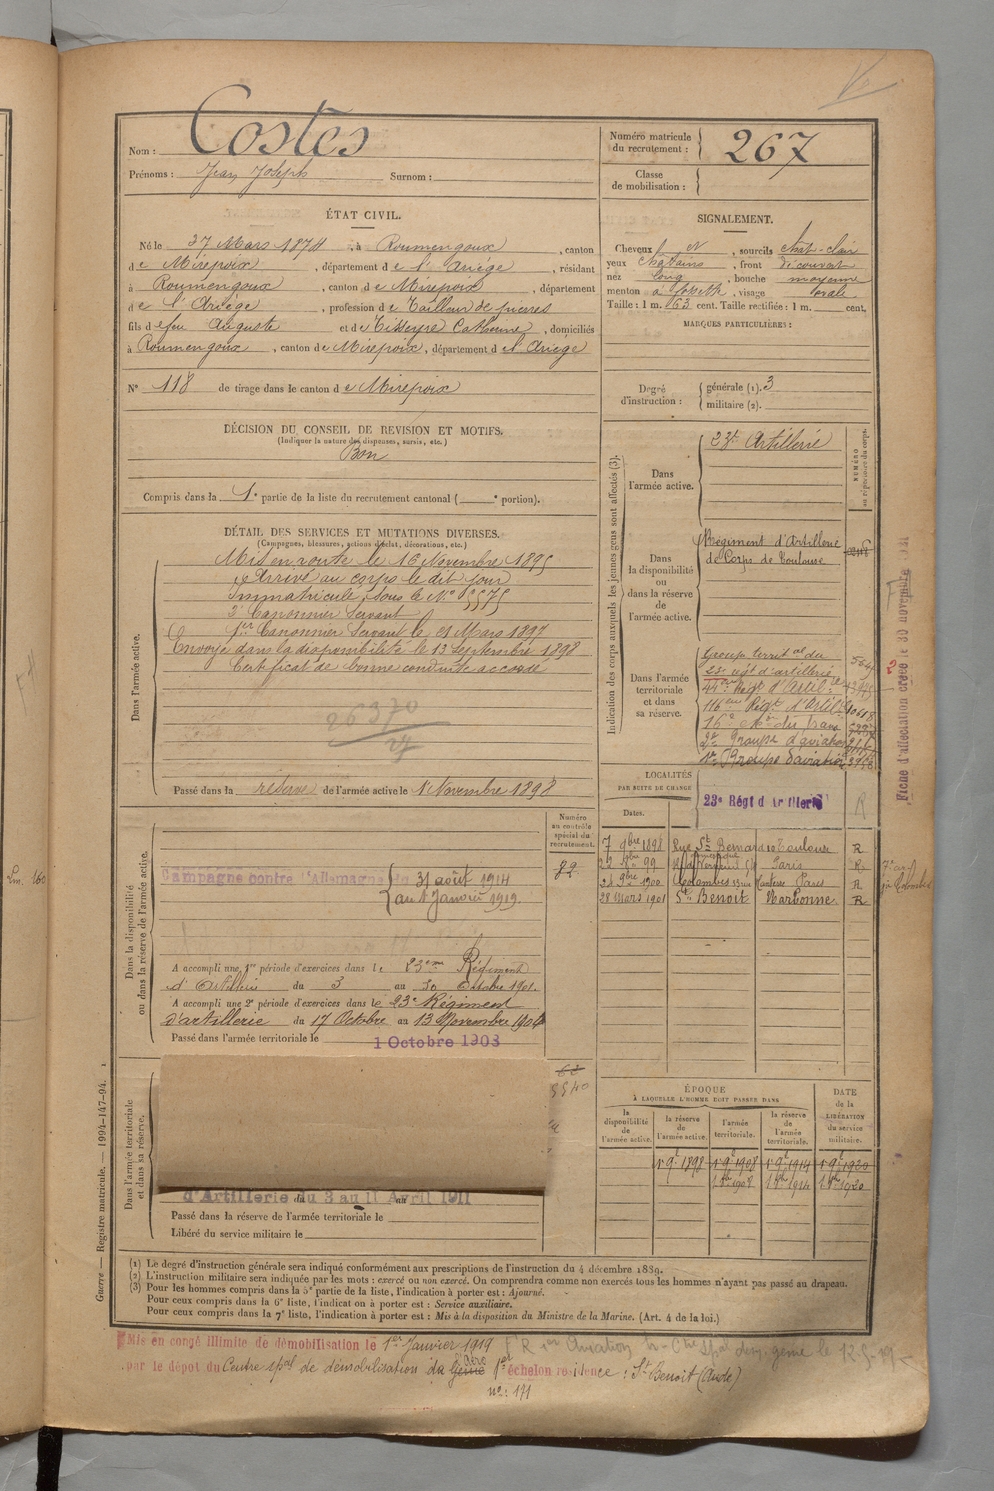 Costes
Nom :
Prénoms : Jean Joseph Surnom :
Numéro matricule du recrutement : 267
Classe de mobilisation :
ÉTAT CIVIL.
Né le 27 Mars 1874, à Roumengoux, canton
de Mirepoix, département de l'Ariège, résidant
à Roumengoux, canton de Mirepoix, département
de l'Ariège, profession de Tailleur de pierres
fils de feu Auguste et de Tisseyre Catherine, domiciliés
à Roumengoux, canton de Mirepoix, département de l'Ariège
N° 118 de tirage dans le canton de Mirepoix
SIGNALEMENT.
Cheveux, sourcils chat-clair
yeux chatains, front découvert
nez long, bouche moyenne
menton à fossette, visage ovale
Taille : 1 m. 63 cent. Taille rectifiée : 1 m. cent.
MARQUES PARTICULIÈRES :
Degré d'instruction : générale (1). 3
militaire (2).
DÉCISION DU CONSEIL DE REVISION ET MOTIFS.
(Indiquer la nature des dispenses, sursis, etc.)
Bon
Compris dans la 1e partie de la liste du recrutement cantonal ( e portion).
DÉTAIL DES SERVICES ET MUTATIONS DIVERSES.
(Campagnes, blessures, actions d'éclat, décorations, etc.)
Dans l'armée active.
Mis en route le 16 Novembre 1895
Arrivé au corps le dit jour
Immatriculé sous le N° 5575
2e Canonnier Servant
1er Canonnier Servant le 21 Mars 1897
Envoyé dans la disponibilité le 13 Septembre 1898
Certificat de bonne conduite accordé
26370
27
Passé dans la réserve de l'armée active le 1 Novembre 1898
Indication des corps auxquels les jeunes gens sont affectés (3).
NUMÉRO au répertoire du corps.
Dans l'armée active.
23e Artillerie
Dans la disponibilité ou dans la réserve de l'armée active.
Régiment d'Artillerie
de Corps de Toulouse
Dans l'armée territoriale et dans sa réserve.
Groupe territal du
23e rgt d'artillerie
116eme Régt d'Artie 10618
2e Groupe d'aviation
1er Groupe d'aviation
Fiche d'affectation créée le 30 novembre
LOCALITÉS
PAR SUITE DE CHANGE
23e Régt d'Artillerie
R
Dates.
7 9bre 1898 Rue St Bernard 10 Toulouse R
99 Paris R
1900 Colombes Nanterre Paris R
28 Mars 1901 St Benoit Narbonne R
Dans la disponibilité ou dans la réserve de l'armée active.
Numéro au contrôle spécial du recrutement.
82
Campagne contre l'Allemagne du 31 août 1914
au 1 Janvier 1919.
A accompli une 1re période d'exercices dans le 23eme Régiment
d'Artillerie du 3 au 30 Octobre 1901.
A accompli une 2e période d'exercices dans le 23e Régiment
d'artillerie du 17 Octobre au 13 Novembre 1904
Passé dans l'armée territoriale le 1 Octobre 1908
Dans l'armée territoriale et dans sa réserve.
5540
d'Artillerie du 3 au 11 Avril 1911
Passé dans la réserve de l'armée territoriale le
Libéré du service militaire le
ÉPOQUE
À LAQUELLE L'HOMME DOIT PASSER DANS
DATE de la LIBÉRATION du service militaire.
la disponibilité de l'armée active.
la réserve de l'armée active.
l'armée territoriale.
la réserve de l'armée territoriale.
1 9e 1898 1 9e 1908 1 9e 1914 1 9e 1920
1 8bre 1908 1 8bre 1914 1 8bre 1920
(1) Le degré d'instruction générale sera indiqué conformément aux prescriptions de l'instruction du 4 décembre 1889.
(2) L'instruction militaire sera indiquée par les mots : exercé ou non exercé. On comprendra comme non exercés tous les hommes n'ayant pas passé au drapeau.
(3) Pour les hommes compris dans la 5e partie de la liste, l'indication à porter est : Ajourné.
Pour ceux compris dans la 6e liste, l'indication à porter est : Service auxiliaire.
Pour ceux compris dans la 7e liste, l'indication à porter est : Mis à la disposition du Ministre de la Marine. (Art. 4 de la loi.)
Guerre — Registre matricule. — 1994-147-94.
Mis en congé illimité de démobilisation le 1er Janvier 1919
par le dépôt du Centre spal de démobilisation du Génie Aéro 1er échelon résidence : St Benoit (Aude)
n° : 171